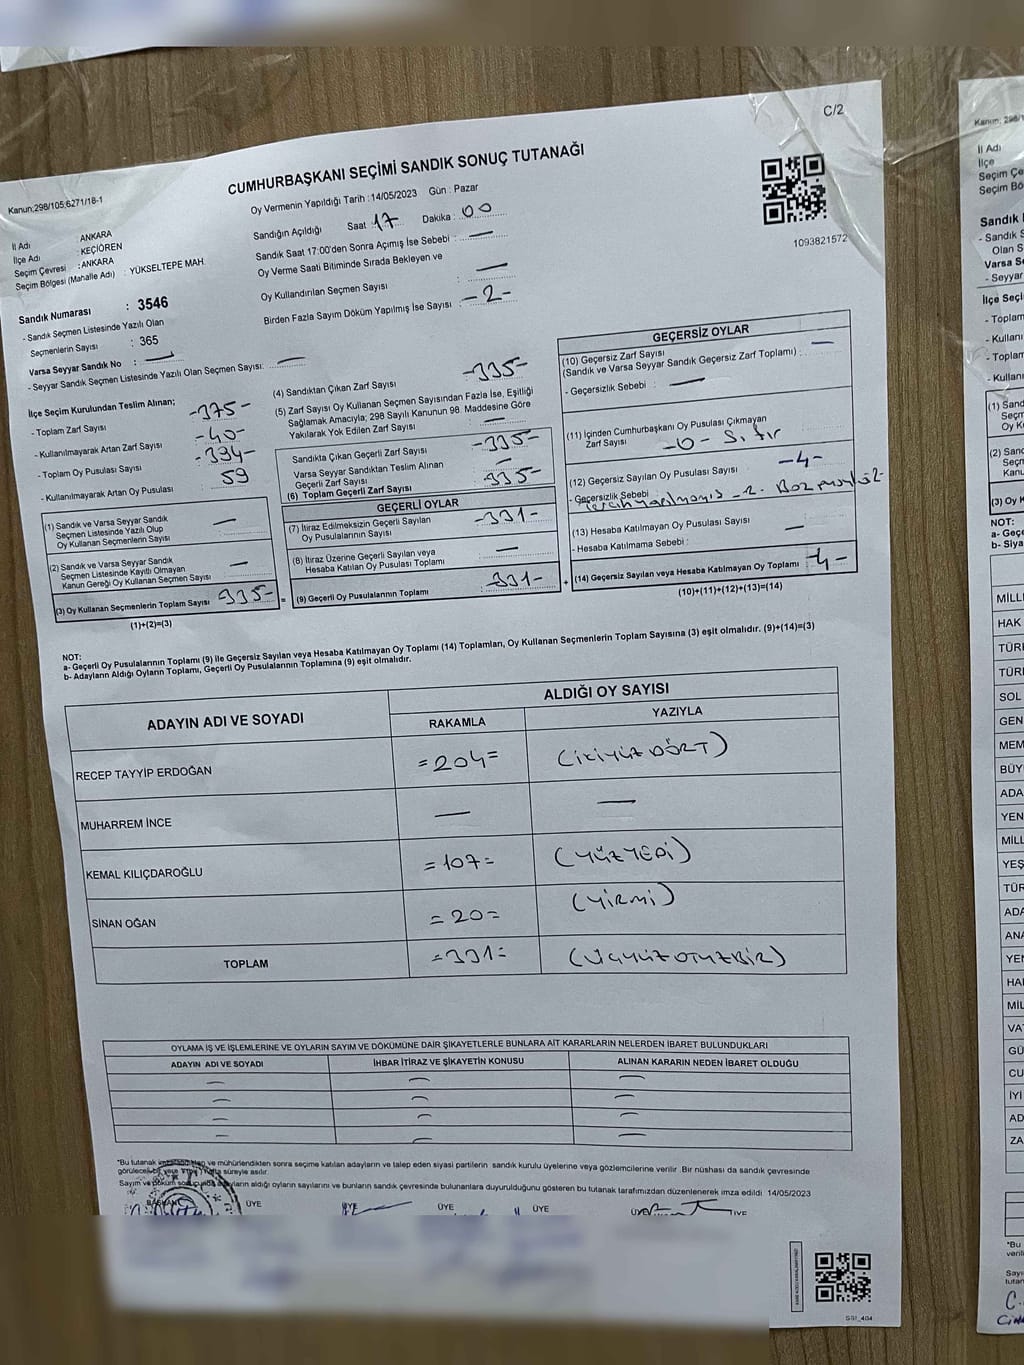 C/2
CUMHURBAŞKANI SEÇİMİ SANDIK SONUÇ TUTANAĞI
Kanun:298/105;6271/18-1
Oy Vermenin Yapıldığı Tarih :14/05/2023 Gün : Pazar
Sandığın Açıldığı Saat : 17 Dakika : 00
Sandık Saat 17:00'den Sonra Açımış İse Sebebi : —
Oy Verme Saati Bitiminde Sırada Bekleyen ve
Oy Kullandırılan Seçmen Sayısı : —
Birden Fazla Sayım Döküm Yapılmış İse Sayısı : -2-
1093821572
İl Adı : ANKARA
İlçe Adı : KEÇİÖREN
Seçim Çevresi : ANKARA
Seçim Bölgesi (Mahalle Adı) : YÜKSELTEPE MAH.
Sandık Numarası : 3546
- Sandık Seçmen Listesinde Yazılı Olan
Seçmenlerin Sayısı : 365
Varsa Seyyar Sandık No : —
- Seyyar Sandık Seçmen Listesinde Yazılı Olan Seçmen Sayısı: —
İlçe Seçim Kurulundan Teslim Alınan;
- Toplam Zarf Sayısı -375-
- Kullanılmayarak Artan Zarf Sayısı -40-
- Toplam Oy Pusulası Sayısı -394-
- Kullanılmayarak Artan Oy Pusulası 59
(1) Sandık ve Varsa Seyyar Sandık
Seçmen Listesinde Yazılı Olup
Oy Kullanan Seçmenlerin Sayısı : —
(2) Sandık ve Varsa Seyyar Sandık
Seçmen Listesinde Kayıtlı Olmayan
Kanun Gereği Oy Kullanan Seçmen Sayısı : —
(3) Oy Kullanan Seçmenlerin Toplam Sayısı 335-
(1)+(2)=(3)
(4) Sandıktan Çıkan Zarf Sayısı -335-
(5) Zarf Sayısı Oy Kullanan Seçmen Sayısından Fazla İse, Eşitliği
Sağlamak Amacıyla; 298 Sayılı Kanunun 98. Maddesine Göre
Yakılarak Yok Edilen Zarf Sayısı : —
Sandıkta Çıkan Geçerli Zarf Sayısı -335-
Varsa Seyyar Sandıktan Teslim Alınan
Geçerli Zarf Sayısı : —
(6) Toplam Geçerli Zarf Sayısı 335-
GEÇERLİ OYLAR
(7) İtiraz Edilmeksizin Geçerli Sayılan
Oy Pusulasının Sayısı -331-
(8) İtiraz Üzerine Geçerli Sayılan veya
Hesaba Katılan Oy Pusulası Toplamı : —
(9) Geçerli Oy Pusulalarının Toplamı : 331-
GEÇERSİZ OYLAR
(10) Geçersiz Zarf Sayısı
(Sandık ve Varsa Seyyar Sandık Geçersiz Zarf Toplamı) : —
- Geçersizlik Sebebi : —
(11) İçinden Cumhurbaşkanı Oy Pusulası Çıkmayan
Zarf Sayısı -0- Sıfır
(12) Geçersiz Sayılan Oy Pusulası Sayısı : -4-
- Geçersizlik Sebebi :
(13) Hesaba Katılmayan Oy Pusulası Sayısı : —
- Hesaba Katılmama Sebebi :
(14) Geçersiz Sayılan veya Hesaba Katılmayan Oy Toplamı 4-
(10)+(11)+(12)+(13)=(14)
NOT:
a- Geçerli Oy Pusulalarının Toplamı (9) ile Geçersiz Sayılan veya Hesaba Katılmayan Oy Toplamı (14) Toplamları, Oy Kullanan Seçmenlerin Toplam Sayısına (3) eşit olmalıdır. (9)+(14)=(3)
b- Adayların Aldığı Oyların Toplamı, Geçerli Oy Pusulalarının Toplamına (9) eşit olmalıdır.
ADAYIN ADI VE SOYADI ALDIĞI OY SAYISI
RAKAMLA YAZIYLA
RECEP TAYYİP ERDOĞAN =204= (İKİYÜZDÖRT)
MUHARREM İNCE — —
KEMAL KILIÇDAROĞLU =107= (YÜZYEDİ)
SİNAN OĞAN =20= (YİRMİ)
TOPLAM =331= (ÜÇYÜZOTUZBİR)
OYLAMA İŞ VE İŞLEMLERİNE VE OYLARIN SAYIM VE DÖKÜMÜNE DAİR ŞİKAYETLERLE BUNLARA AİT KARARLARIN NELERDEN İBARET BULUNDUKLARI
ADAYIN ADI VE SOYADI İHBAR İTİRAZ VE ŞİKAYETİN KONUSU ALINAN KARARIN NEDEN İBARET OLDUĞU
*Bu tutanak ve mühürlendikten sonra seçime katılan adayların ve talep eden siyasi partilerin sandık kurulu üyelerine veya gözlemcilerine verilir .Bir nüshası da sandık çevresinde
süreyle asılır.
Sayım ve döküm aldığı oyların sayılarını ve bunların sandık çevresinde bulunanlara duyurulduğunu gösteren bu tutanak tarafımızdan düzenlenerek imza edildi 14/05/2023
BAŞKAN ÜYE ÜYE ÜYE ÜYE ÜYE
SSI_404